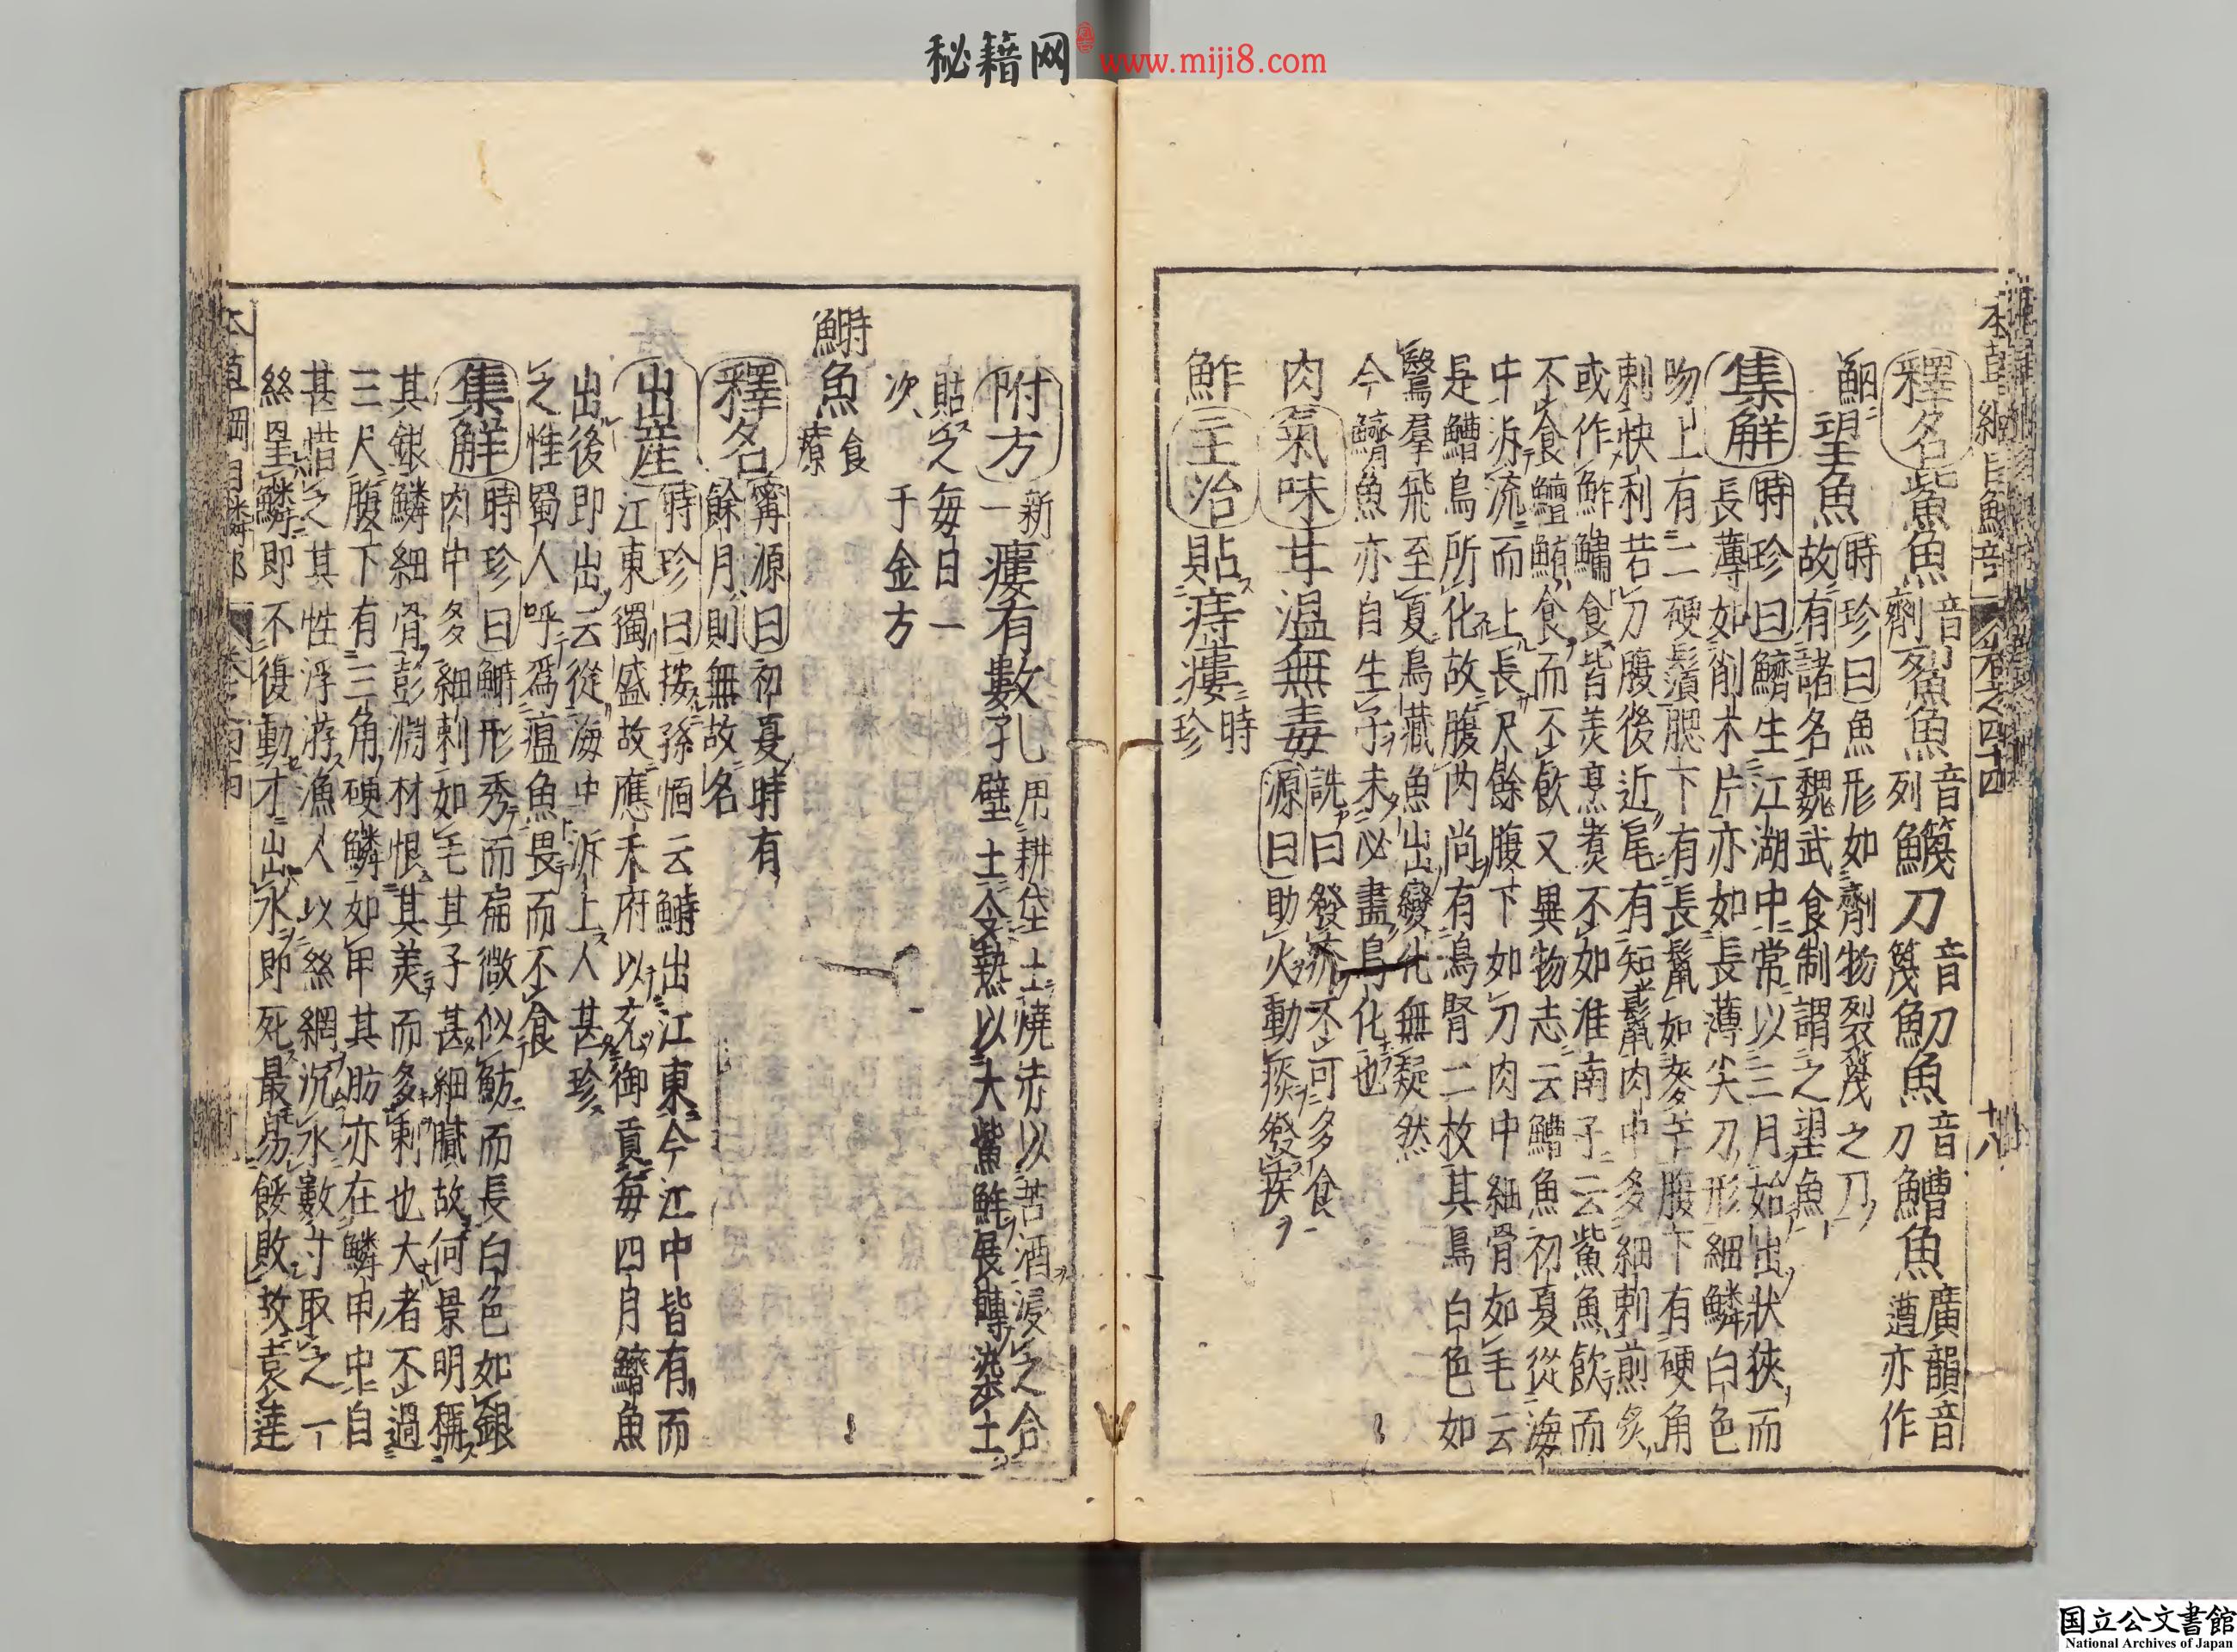 秘籍网 www.miji8.com
本草綱目鱗部 卷之四十四 十八
釋名 鮆魚 音劑 鮤魚 音列 鱴刀 音篾 魛魚 音刀 鱭魚 廣韻音遭亦作
鮂 望魚 時珍曰魚形如劑物裂篾之刀
故有諸名魏武食制謂之望魚
集解 時珍曰鱭生江湖中常以三月始出狀狹而
長薄如削木片亦如長薄尖刀形細鱗白色
吻上有二硬鬚腮下有長鬣如麥芒腹下有硬角
刺快利若刀腹後近尾有短鬣肉中多細刺煎炙
或作鮓鱐食皆美烹煮不如淮南子云鮆魚飲而
不食鱣鮪食而不飲又異物志云鱭魚初夏從海
中泝流而上長尺餘腹下如刀肉中細骨如毛云
是鱭鳥所化故腹內尚有鳥腎二枚其鳥白色如
鷖羣飛至夏鳥藏魚出變化無疑然
今鱭魚亦自生子未必盡鳥化也
肉 氣味 甘溫無毒 詵曰發疥不可多食
源曰助火動痰發疾
鮓 主治 貼痔瘻 時珍
附方 新一 瘻有數孔 用耕垡土燒赤以苦酒浸之合
壁土令熱以大鮆鮓展轉染土
貼之每日一
次 千金方
鰣魚 食療
釋名 甯源曰初夏時有
餘月則無故名
出產 時珍曰按孫愐云鰣出江東今江中皆有而
江東獨盛故應禾府以充御貢每四月鱭魚
出後即出云從海中泝上人甚珍
之惟蜀人呼爲瘟魚畏而不食
集解 時珍曰鰣形秀而扁微似魴而長白色如銀
肉中多細刺如毛其子甚細膩故何景明稱
其銀鱗細骨彭淵材恨其美而多刺也大者不過
三尺腹下有三角硬鱗如甲其肪亦在鱗甲中自
甚惜之其性浮游漁人以絲網沉水數寸取之一
絲罣鱗即不復動才出水即死最易餒敗故袁達
本草綱目鱗部 卷之四十四
国立公文書館
National Archives of Japan